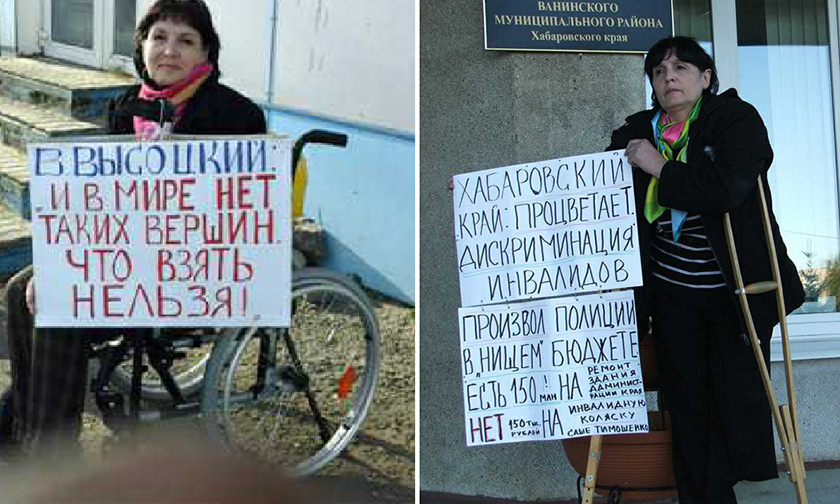 В ВЫСОЦКИЙ:
"И В МИРЕ НЕТ
ТАКИХ ВЕРШИН.
ЧТО ВЗЯТЬ
НЕЛЬЗЯ!"
ВАНИНСКОГО
МУНИЦИПАЛЬНОГО РАЙОНА
Хабаровского края
ХАБАРОВСКИЙ
КРАЙ: ПРОЦВЕТАЕТ
ДИСКРИМИНАЦИЯ
ИНВАЛИДОВ
ПРОИЗВОЛ ПОЛИЦИИ
В "НИЩЕМ" БЮДЖЕТЕ
ЕСТЬ 150 МЛН! НА РЕМОНТ ЗДАНИЯ АДМИНИСТРАЦИИ КРАЯ
НЕТ 150 ТЫС. РУБЛЕЙ НА ИНВАЛИДНУЮ КОЛЯСКУ САШЕ ТИМОШЕНКО